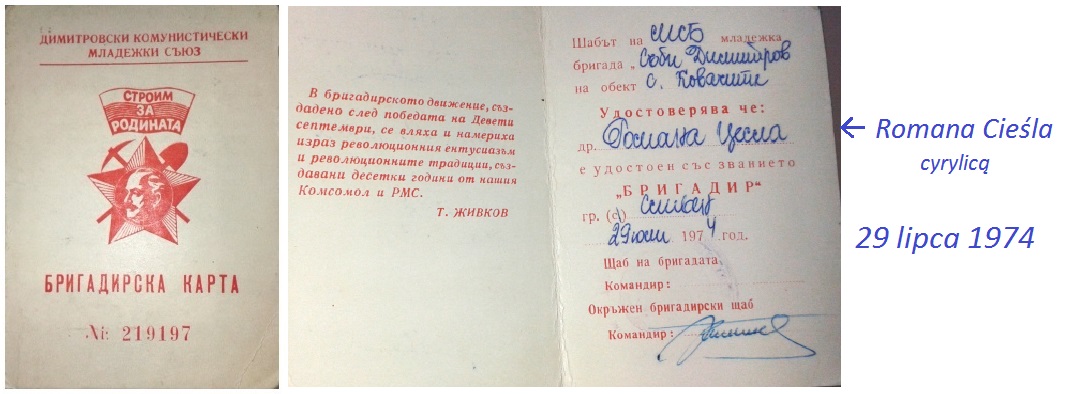 ДИМИТРОВСКИ КОМУНИСТИЧЕСКИ
МЛАДЕЖКИ СЪЮЗ
СТРОИМ
ЗА
РОДИНАТА
БРИГАДИРСКА КАРТА
№ 219197
В бригадирското движение, съз-
дадено след победата на Девети
септември, се вляха и намериха
израз революционния ентусиазъм
и революционните традиции, съз-
давани десетки години от нашия
Комсомол и РМС.
Т. ЖИВКОВ
Щабът на МСБ младежка
бригада „ Съби Димитров
на обект с. Ковачите
Удостоверява че:
др. Романа Цесла
е удостоен със званието
„БРИГАДИР“
гр. (с)
29 юли 1974 год.
Щаб на бригадата
Командир:
Окръжен бригадирски щаб
Командир:
← Romana Cieśla
cyrylicą
29 lipca 1974